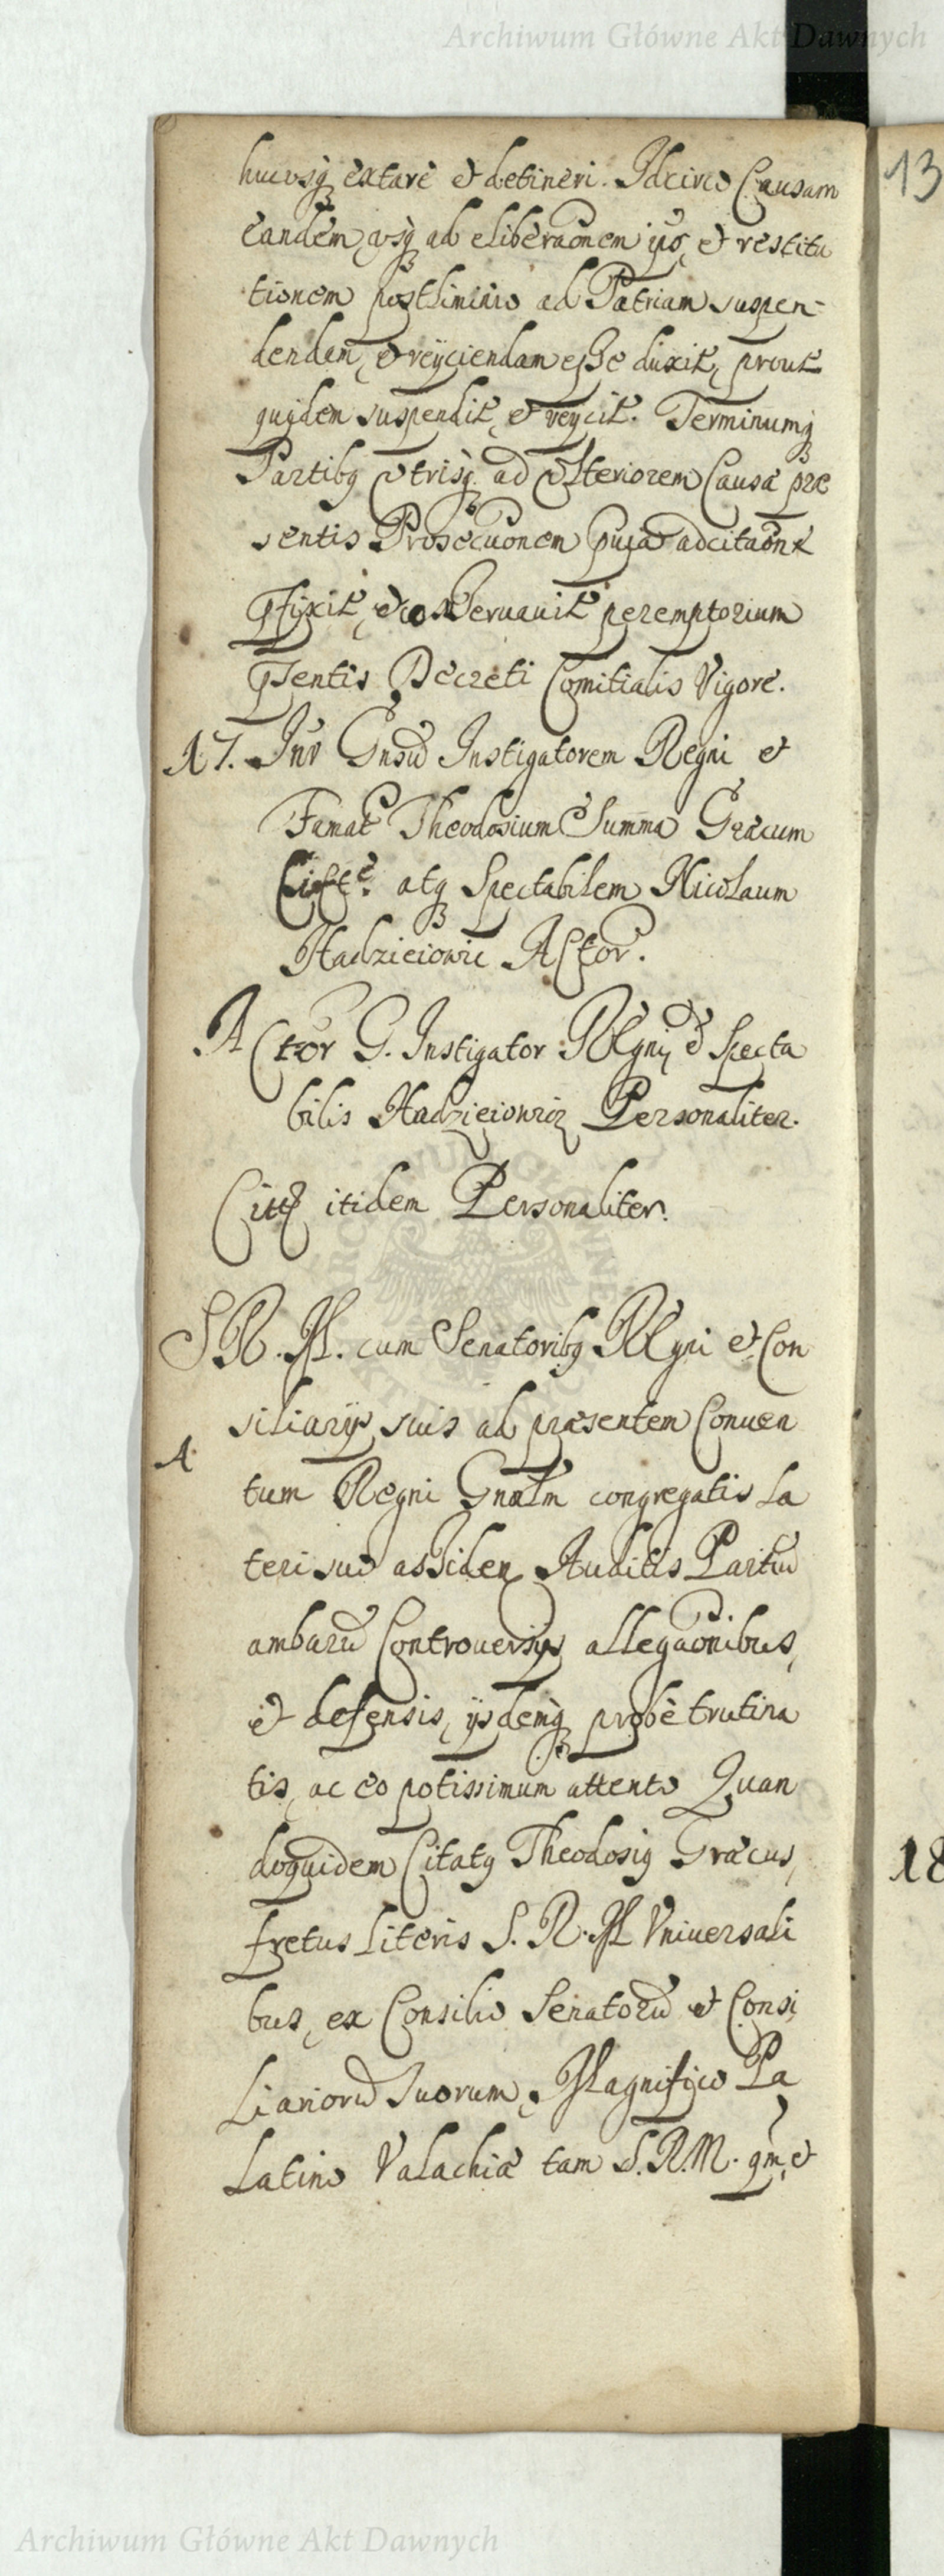 Archiwum Główne Akt Dawnych
13
hucusq extare et detineri. Idcirco Causam
eandem, usq ad eliberaonem ips, et restitu
tionem postliminio ad Patriam suspen-
dendam, et reijciendam esse duxit, prout
quidem suspendit, et reijcit. Terminumq
Partibq utrisq ad ulteriorem Causæ præ
sentis Prosecuonem adcitaone
pfixit, et conservavit peremptorium
psentis Decreti Comitialis Vigore.
17. Intr Gnsu Instigatorem Regni et
Famat Theodosium Summa Græcum
Citte. atq Spectabilem Nicolaum
Hadzieiowic Actor.
Actor G. Instigator Regni, et Specta
bilis Hadzieiowicz Personaliter.
Citt itidem Personaliter.
S R. M. cum Senatoribq Regni et Con
siliarijs suis ad præsentem Conuen
A
tum Regni Gnalm congregatis La
teri suo assiden Auditis Partiu
ambaru Controuersijs allegaonibus,
et defensis, ijsdemq probè trutina
tis, ac eo potissimum attento Quan
doquidem Citatq Theodosiq Græcus,
fretus Literis S. R. M. Vniuersali
18
bus, ex Consilio Senatoru et Consi
Liarioru Suorum, Magnifico Pa
Latino Valachiæ tam S. R. M. qm, et
Archiwum Główne Akt Dawnych